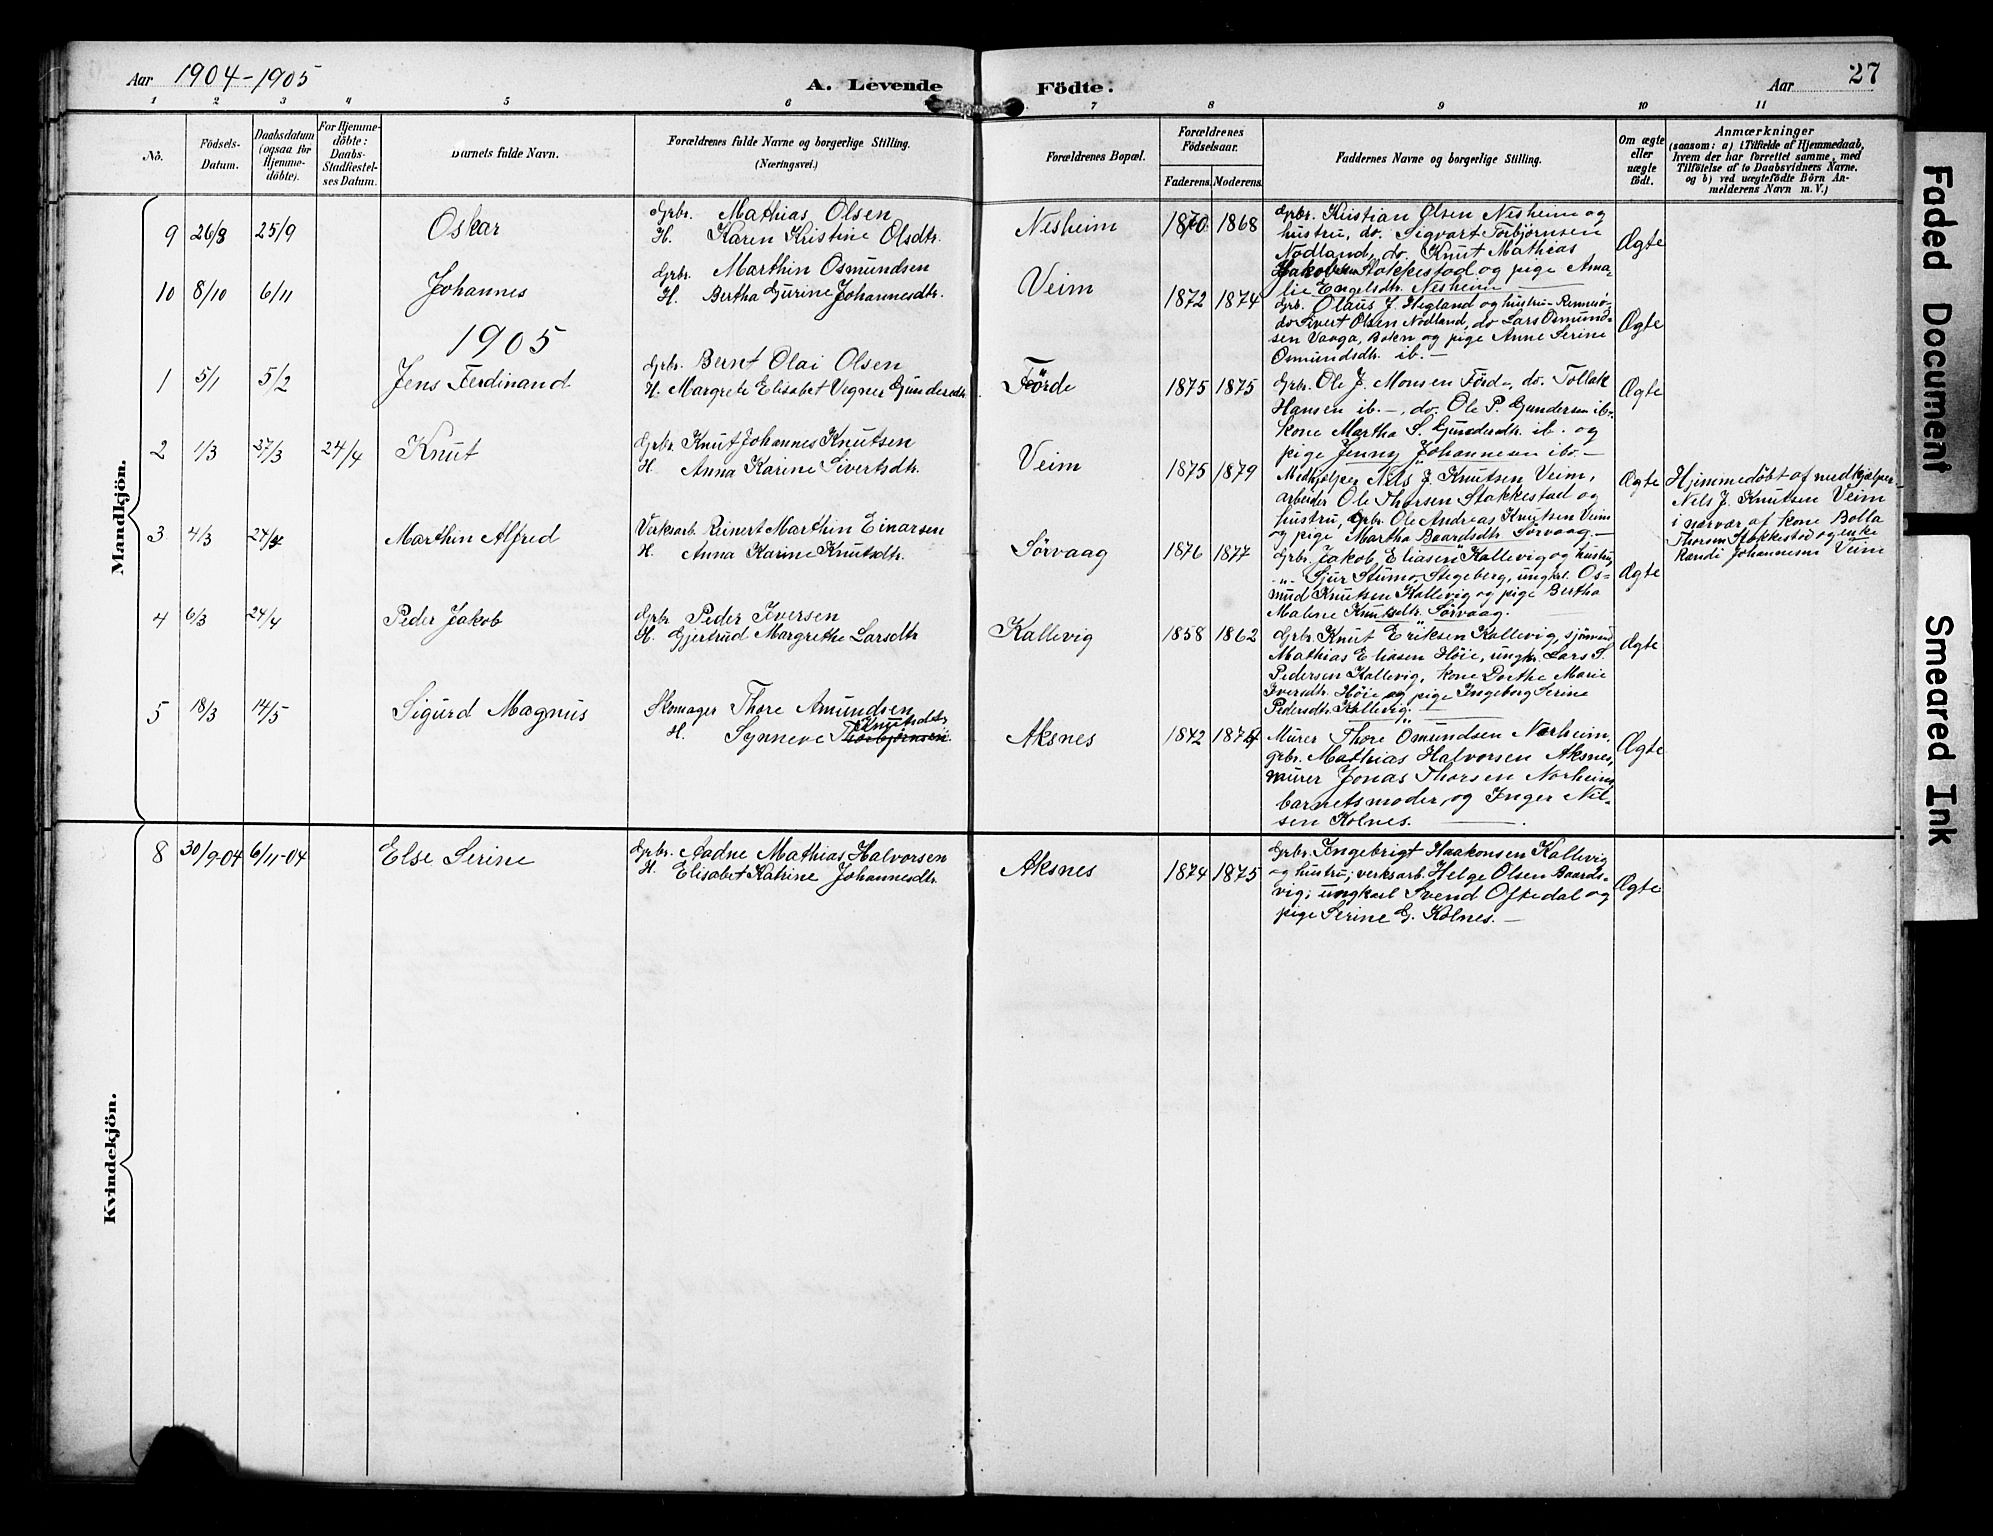 Aar 1904-1905 A. Levende Födte. Aar 27
1 2 3 4 5 6 7 8 9 10 11
No.
Födsels-Datum.
Daabsdatum (ogsaa for Hjemme-döbte).
For Hjemme-döbte: Daabs-Stadfæstel-ses Datum.
Barnets fulde Navn.
Forældrenes fulde Navne og borgerlige Stilling. (Næringsvei.)
Forældrenes Bopæl.
Forældrenes Födselsaar.
Faderens. Moderens.
Faddernes Navne og borgerlige Stilling.
Om ægte eller uægte födt.
Anmærkninger
(saasom: a) i Tilfælde af Hjemmedaab,
hvem der har forrettet samme, med
Tilföielse af to Daabsvidners Navne,
og b) ved uægtefödte Börn An-
melderens Navn m. V.)
Mandkjön.
9 26/8 25/9 Oskar
Grbr. Mathias Olsen
H. Karen Kristine Olsdtr.
Nesheim 1870 1868
Grbr. Kristian Olsen Nesheim og
hustru, do. Sigvart Torbjørnsen
Nodland, do. Knut Mathias
Jakobsen Stokkestad og pige Ama-
lie Engelsdtr. Nesheim
Ægte
10 8/10 6/11 Johannes
Grbr. Marthin Osmundsen
H. Bertha Gurine Johannesdtr.
Veim 1872 1874
Grb. Olaus J. Hegland og hustru - Rennesö-
do Sivert Olsen Nodland, do Lars Osmund-
sen Vaaga, Boken og pige Anne Serine
Osmundsdtr. ib. -
Ægte
1905
1 5/1 5/2 Jens Ferdinand
Grbr. Bernt Olai Olsen
H. Margrete Elisabet Vegner Gundersdtr.
Förde 1875 1875
Grbr. Ole J. Monsen Förde, do. Tollak
Hansen ib. -, do. Ole P. Gundersen ib.
kone Martha S. Gundersdtr. ib. og
pige Jenny Johannesen ib. -
Ægte
2 1/3 27/3 24/4 Knut
Grbr. Knut Johannes Knutsen
H. Anna Karine Sivertsdtr.
Veim 1875 1879
Medhjelper Nils J. Knutsen Veim,
arbeider Ole Thorsen Stokkestad og
hustru, Grbr. Ole Andreas Knutsen Veim
og pige Martha Baardsdtr. Sörvaag. -
Ægte
Hjemmedöbt af medhjælper
Nils J. Knutsen Veim
i nærvær af kone Bolla
Thorsen Stokkestad og enke
Randi Johannesen Veim
3 4/3 24/4 Marthin Alfred
Verksarb. Reinert Marthin Einarsen
H. Anna Karine Knutsdtr.
Sörvaag 1876 1877
Grbr. Jakob Eliasen Kallevig og hustru,
" Sjur Stumo, Stegeberg, ungkrl. Os-
mud Knutsen Kallevig og pige Bertha
Maline Knutsdtr. Sörvaag.
Ægte
4 6/3 24/4 Peder Jakob
Grbr. Peder Iversen
H. Gjertrud Margrethe Larsdtr
Kallevig 1858 1862
Grbr. Knut Eriksen Kallevig, sjömand
Mathias Eliasen Höie, ungkr. Lars S.
Pedersen Kallevig, kone Dorthe Marie
Iversdtr. Höie og pige Ingeborg Serine
Pedersdtr. Kallevig.
Ægte
5 18/3 14/5 Sigurd Magnus
Skomager Thore Amundsen
Knutsdtr
H. Synneve Thorbjørnsen
Aksnes 1842 1874
Murer Thore Osmundsen Norheim,
grbr. Mathias Halvorsen Aksnes,
murer Jonas Thorsen Norheim,
barnets moder, og Inger Nil-
sen Kolnes.
Ægte
Kvindekjön.
8 30/9-04 6/11-04 Else Serine
Grbr. Aadne Mathias Halvorsen
H. Elisabet Katrine Johannesdtr.
Aksnes 1874 1875
Grbr. Ingebrigt Haakonsen Kallevig
og hustru; verksarb. Helge Olsen Baards-
vig; ungkarl Svend Oftedal og
pige Serine G. Kolnes. -
Ægte
Faded Document
Smeared Ink